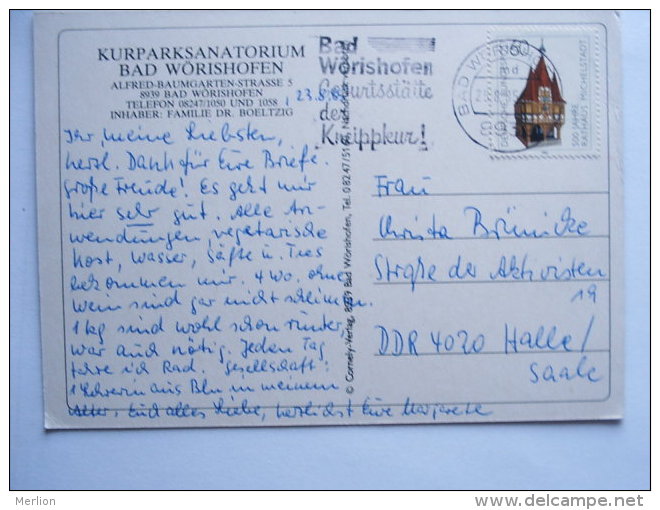 KURPARKSANATORIUM
BAD WÖRISHOFEN
ALFRED-BAUMGARTEN-STRASSE 5
8939 BAD WÖRISHOFEN
TELEFON 08247/1050 UND 1058
INHABER: FAMILIE DR. BOELTZIG
23.8.84
Ihr, meine Liebsten,
herzl. Dank für Eure Briefe.
große Freude! Es geht mir
hier sehr gut. Alle An-
wendungen, vegetarische
Kost, Wasser, Säfte u. Tees
bekommen mir. 4 Wo. ohne
Wein sind gar nicht schlimm.
1 kg sind wohl schon runter,
war auch nötig. Jeden Tag
fahre ich Rad. Gesellschaft:
1 Lehrerin aus Bln in meinem
Alter, Euch alles Liebe, herzlichst Eure Margarete
© Cornely-Verlag, 8939 Bad Wörishofen, Tel. 0 82 47/51
Bad
Wörishofen
Geburtsstätte
der
Kneippkur!
BAD WÖRI
60
500 JAHRE
RATHAUS MICHELSTADT
DEUTSCHE BUNDESPOST
Frau
Christa Brünicke
Straße der Aktivisten
19
DDR 4020 Halle/
Saale
Merlion
www.delcampe.net